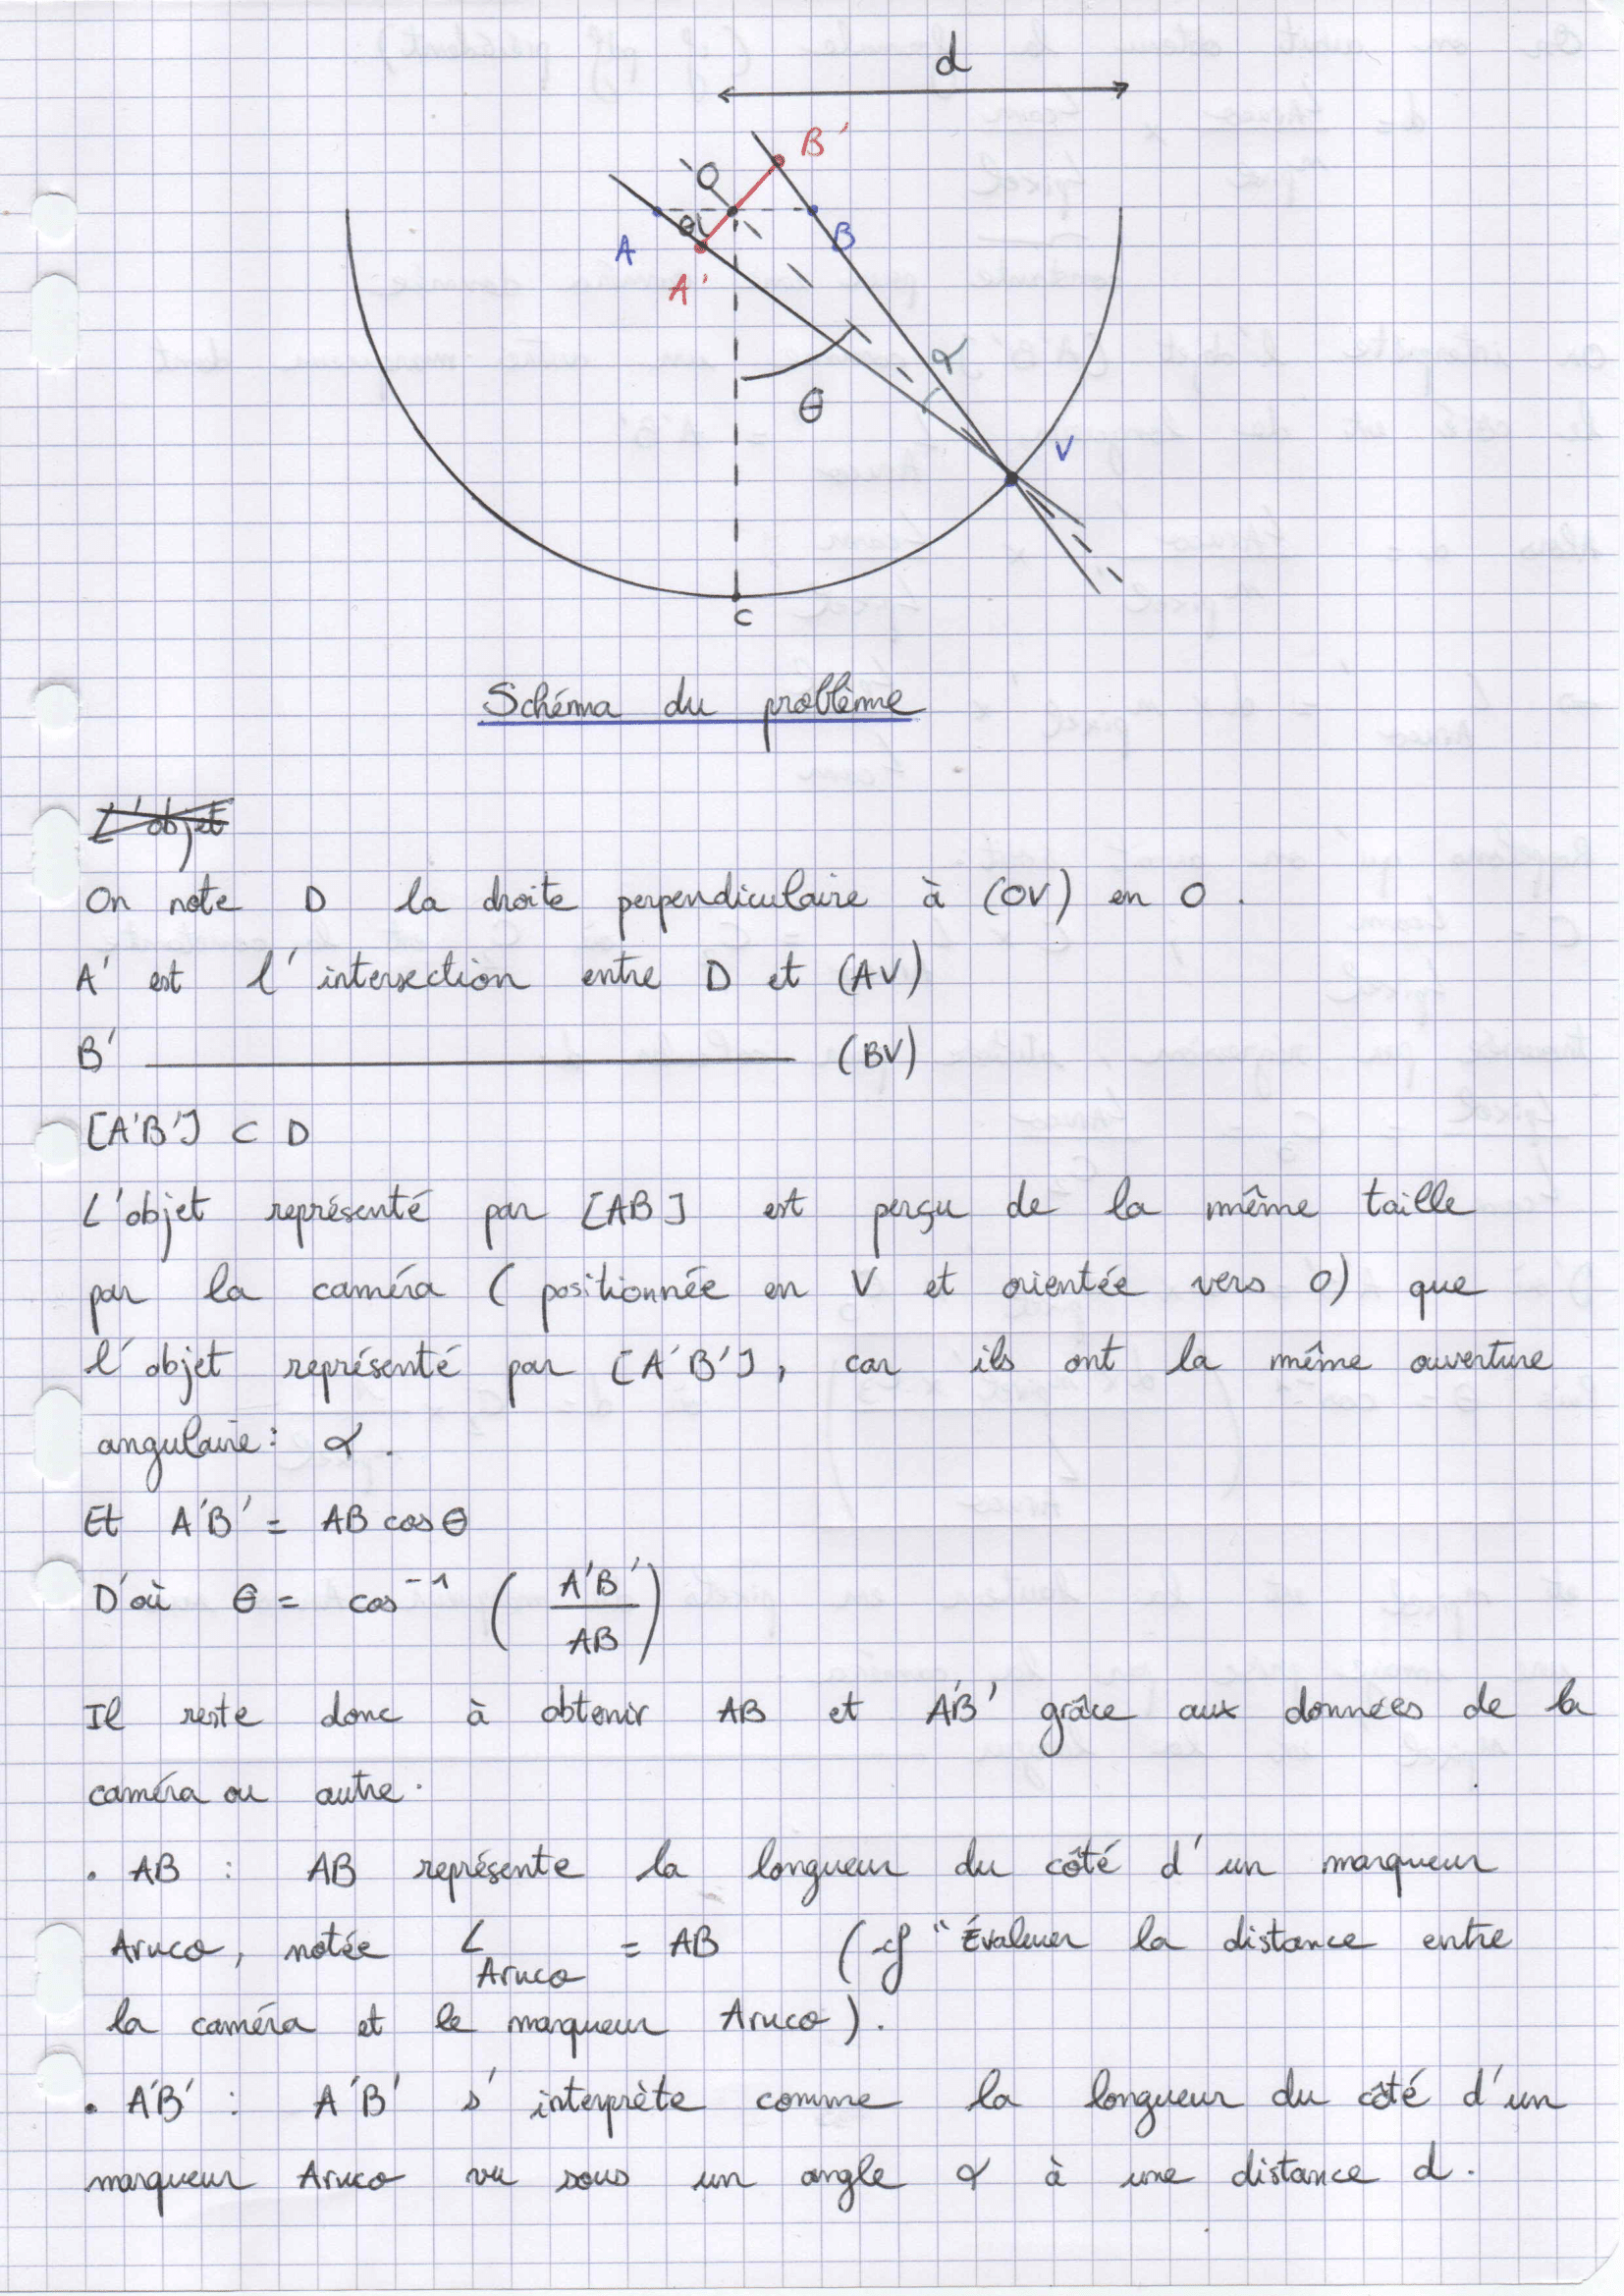 d
B'
O
θ
A
B
A'
α
θ
V
C
Schéma du problème
L'objet
On note D la droite perpendiculaire à (OV) en O.
A' est l'intersection entre D et (AV)
B' ———————— (BV)
[A'B'] ⊂ D
L'objet représenté par [AB] est perçu de la même taille
par la caméra (positionnée en V et orientée vers O) que
l'objet représenté par [A'B'], car ils ont la même ouverture
angulaire : α.
Et A'B' = AB cos θ
D'où θ = cos⁻¹ (A'B' / AB)
Il reste donc à obtenir AB et A'B' grâce aux données de la
caméra ou autre.
• AB : AB représente la longueur du côté d'un marqueur
Aruco, notée L_Aruco = AB (cf "Évaluer la distance entre
la caméra et le marqueur Aruco).
• A'B' : A'B' s'interprète comme la longueur du côté d'un
marqueur Aruco vu sous un angle α à une distance d.